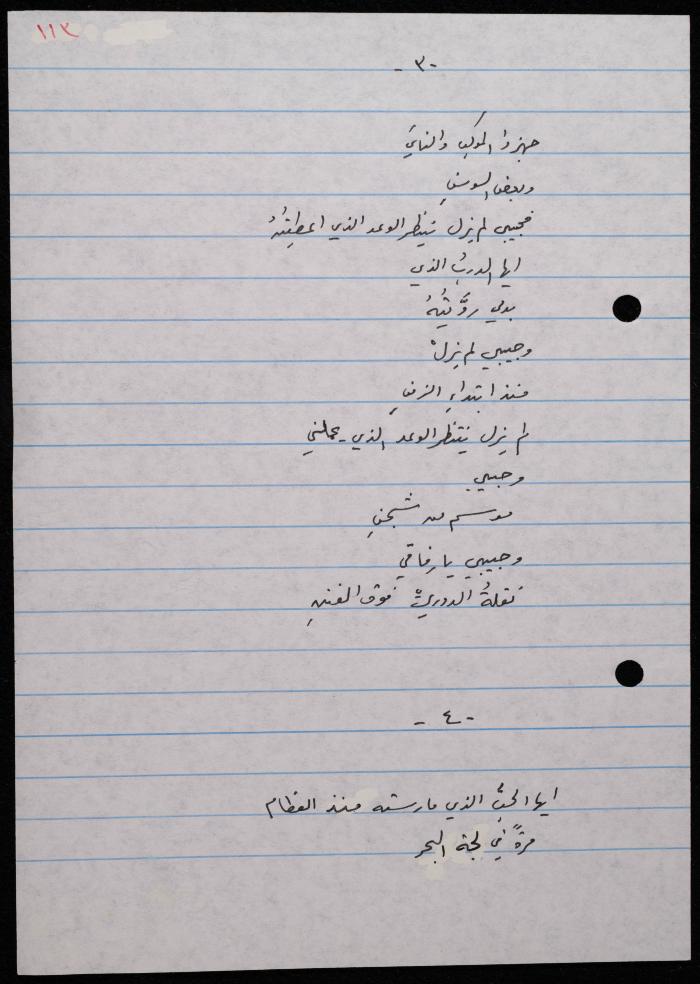 ١١٣
-٣-
جهزوا الموكب والنايَ
وبعض السوسنِ
فحبيبي لم يزل ينتظر الوعد الذي اعطيتُهُ
ايها الدربُ الذي
بدمي روَّيتُهُ
وحبيبي لم يزلْ
منذ ابتداءِ الزمنِ
لم يزل ينتظر الوعد الذي يحملني
وحبيبي
موسم من شجنِ
وحبيبي يا رفاقي
نقلةُ الدوريِّ فوق الفننِ
-٤-
ايها الحبُّ الذي مارسته منذ الفطام
مرةً في لجة البحر